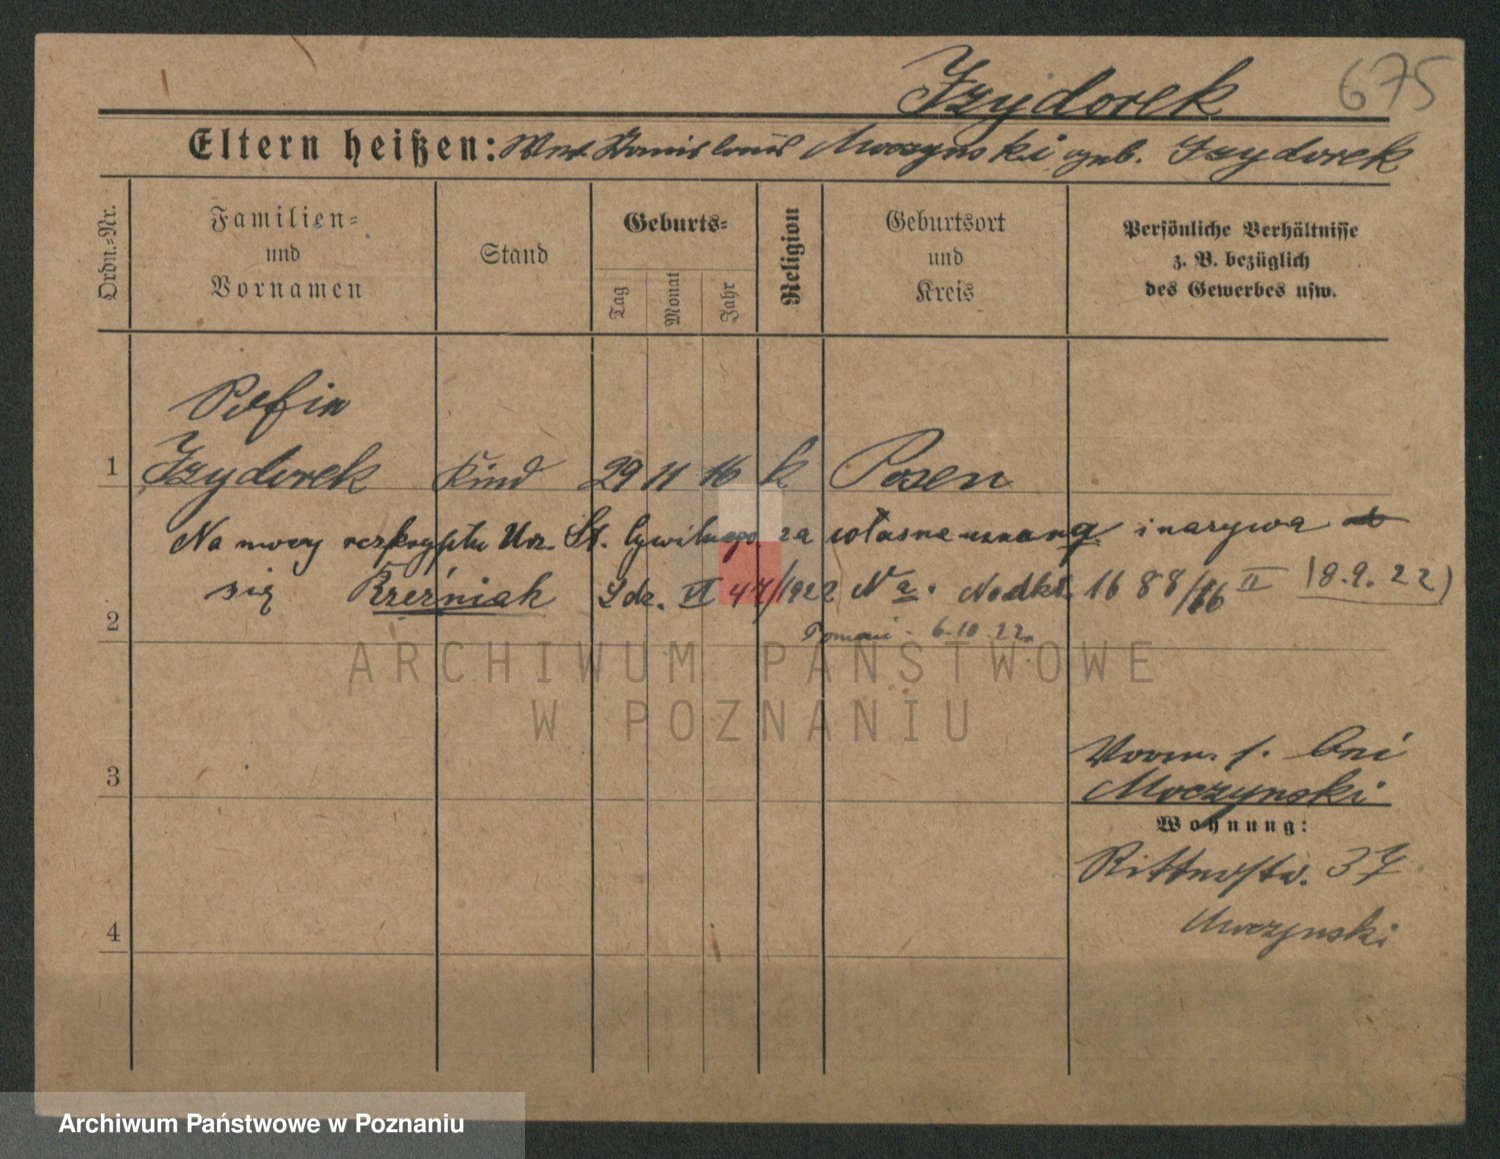 Izydorek 675
Eltern heißen: Stanislaus Moczynski geb. Izydorek
Ordn.-Nr.
Familien-
und
Vornamen
Stand
Geburts-
Tag
Monat
Jahr
Religion
Geburtsort
und
Kreis
Persönliche Verhältnisse
z. B. bezüglich
des Gewerbes usw.
1
Izydorek Kind 29 11 16 k Posen
Na mocy reskryptu Urz. St. Cywilnego za własne uznang i nazywa
się Brzeźniak Ldz. VI 47/1922 Nadkt. 1688/16 II (8.9.22)
2
6.10.22.
ARCHIWUM PAŃSTWOWE
W POZNANIU
3
Vorm. f. bei
Moczynski
Wohnung:
Ritterstr. 37
4
Moczynski
Archiwum Państwowe w Poznaniu